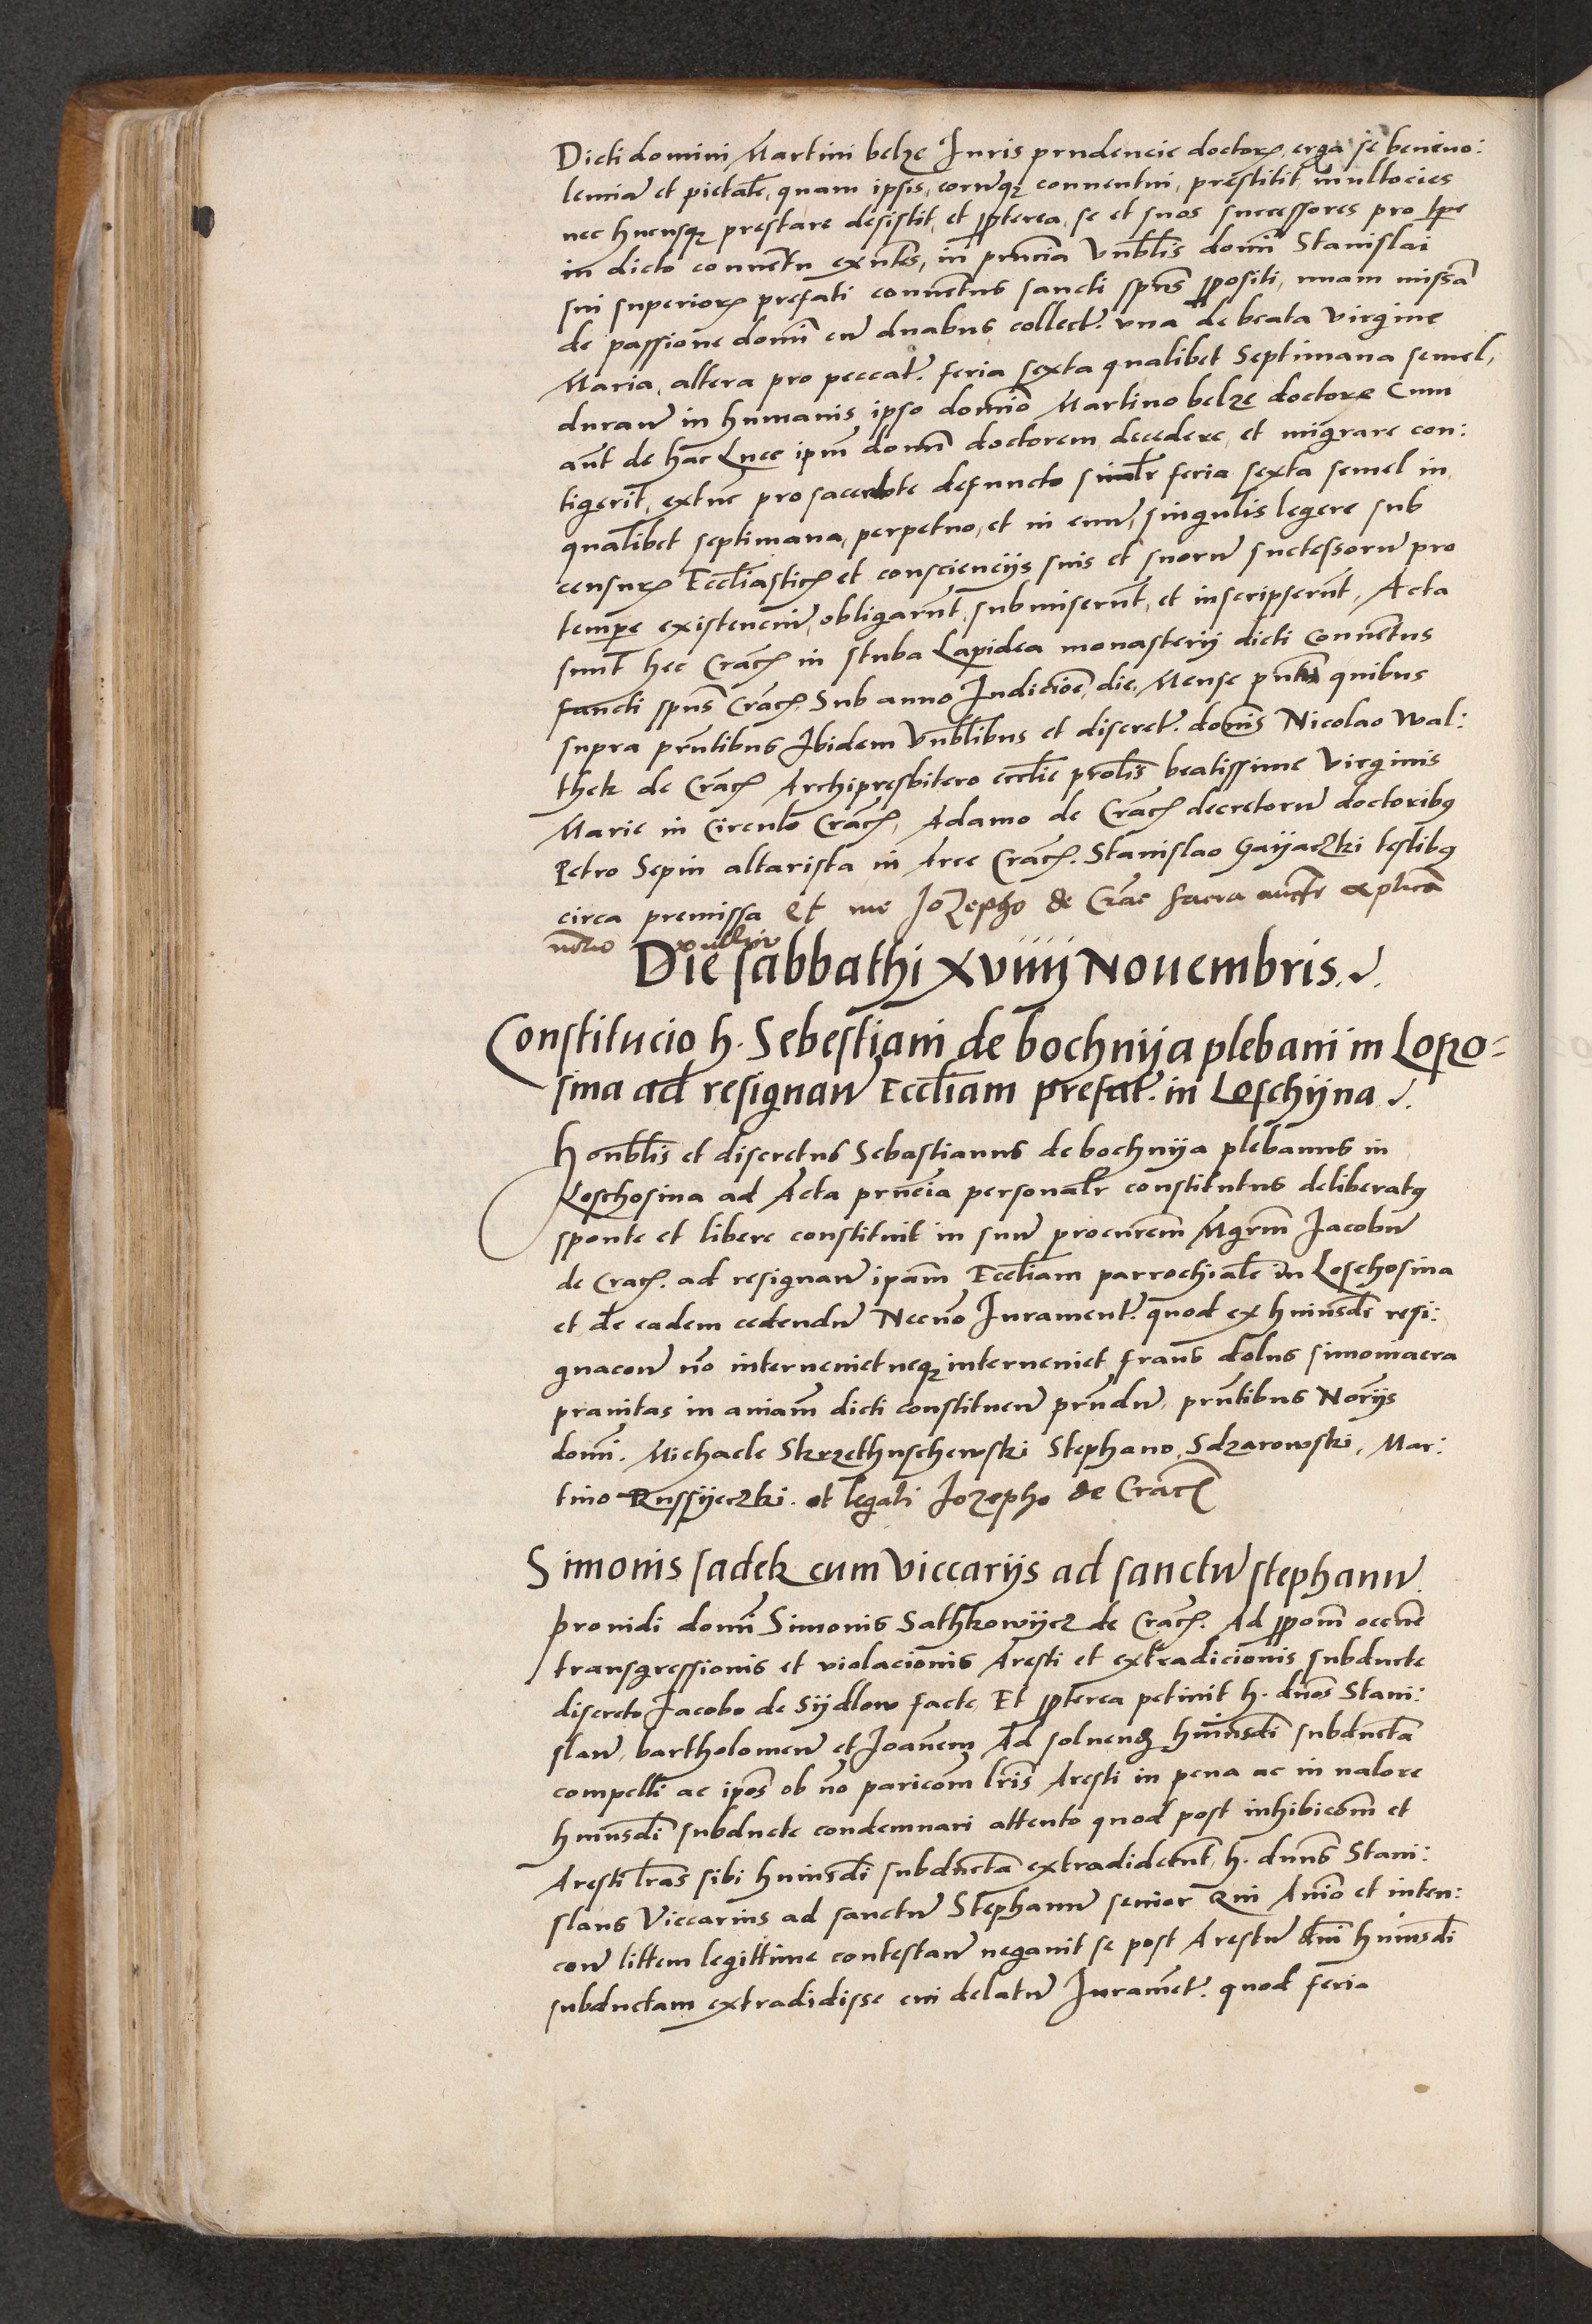 Dicti domini Martini belze Iuris prudencie doctor erga se beniuo:
lencia et pietate, quam ipsis, eorumq conuentui, prestitit multocies
nec hucusq prestare desistit, et ppterea se et suos successores pro tpe
in dicto conuentu exntes, in pncia Vnblis domi Stanislai
sui superior prefati conuentus sancti spus ppositi, unam missa
de passione domi cu duabus collect. una de beata virgine
Maria, altera pro peccat. feria sexta qualibet Septimana semel,
duran in humanis ipso domio Martino belze doctore Cum
aut de hac Luce ipm domi doctorem decedere, et migrare con:
tigerit, extunc pro sacerdote defuncto similr feria sexta semel in
qualibet septimana, perpetuo, et in euu, singulis legere sub
censur Eccliastic et conscienciis suis et suoru successoru pro
tempe existenciu, obligarut, submiserut, et inscripserut, Acta
sunt hec Crac in stuba Lapidea monasterij dicti Conuetus
sancti spus Crac, Sub anno Indicioe, die, Mense quibus
supra prntibus Ibidem Vnblibus et discret. domis Nicolao Wal:
thek de Crac Archipresbitero ecclie prolis beatissime Virginis
Marie in Circulo Crac, Adamo de Crac decretoru doctoribq
Petro Sepin altarista in Arce Crac. Stanislao Gayaczki testibq
circa premissa Et me Jozepho de Crac sacra auctte aplica
notario
Die sabbathi xviiij Nouembris.
Constitucio h. Sebestiani de bochnija plebani in Lopo=
sina ad resignan Eccliam prefat. in Loschijna.
Honblis et discretus Sebastianus de bochnija plebanus in
Loschosina ad Acta prncia personalr constitutus deliberatq
sponte et libere constituit in suu procurem Mgrm Jacobu
de Crac. ad resignan ipam Eccliam parrochiale in Loschosina
et de eadem cedendu Necno Iurament. quod ex huiusdi resi:
gnacon no interuenit neq interueniet fraus dolus simoniaca
prauitas in aniam dicti constituen prndu, prntibus Norijs
domi. Michaele Skrzethuschewski Stephano Sdzarowski, Mar:
tino Russyeczki. et legali Jozepho de Crac
Simonis sadek cum Viccarijs ad sanctu stephanu
prouidi domi Simonis Sathkowijcz de Crac. Ad ppom occne
transgressionis et violacionis Aresti et extradicionis subducte
discreto Jacobo de Sijdlow facte, Et ppterea petiuit h. dnos Stani:
slau, bartholomeu et Joanem Ad soluend huiusdi subducta
compelli ac ipos ob no paricom lris Aresti in pena ac in ualore
huiusdi subducte condemnari attento quod post inhibicom et
Aresti lras sibi huiusdi subducta extradiderut, h. dnus Stani:
slaus Viccarius ad sanctu Stephanu senior Qui Anio et inten:
con littem legittime contestan negauit se post Arestu huiusdi
subductam extradidisse cui delatu Jurament. quod feria